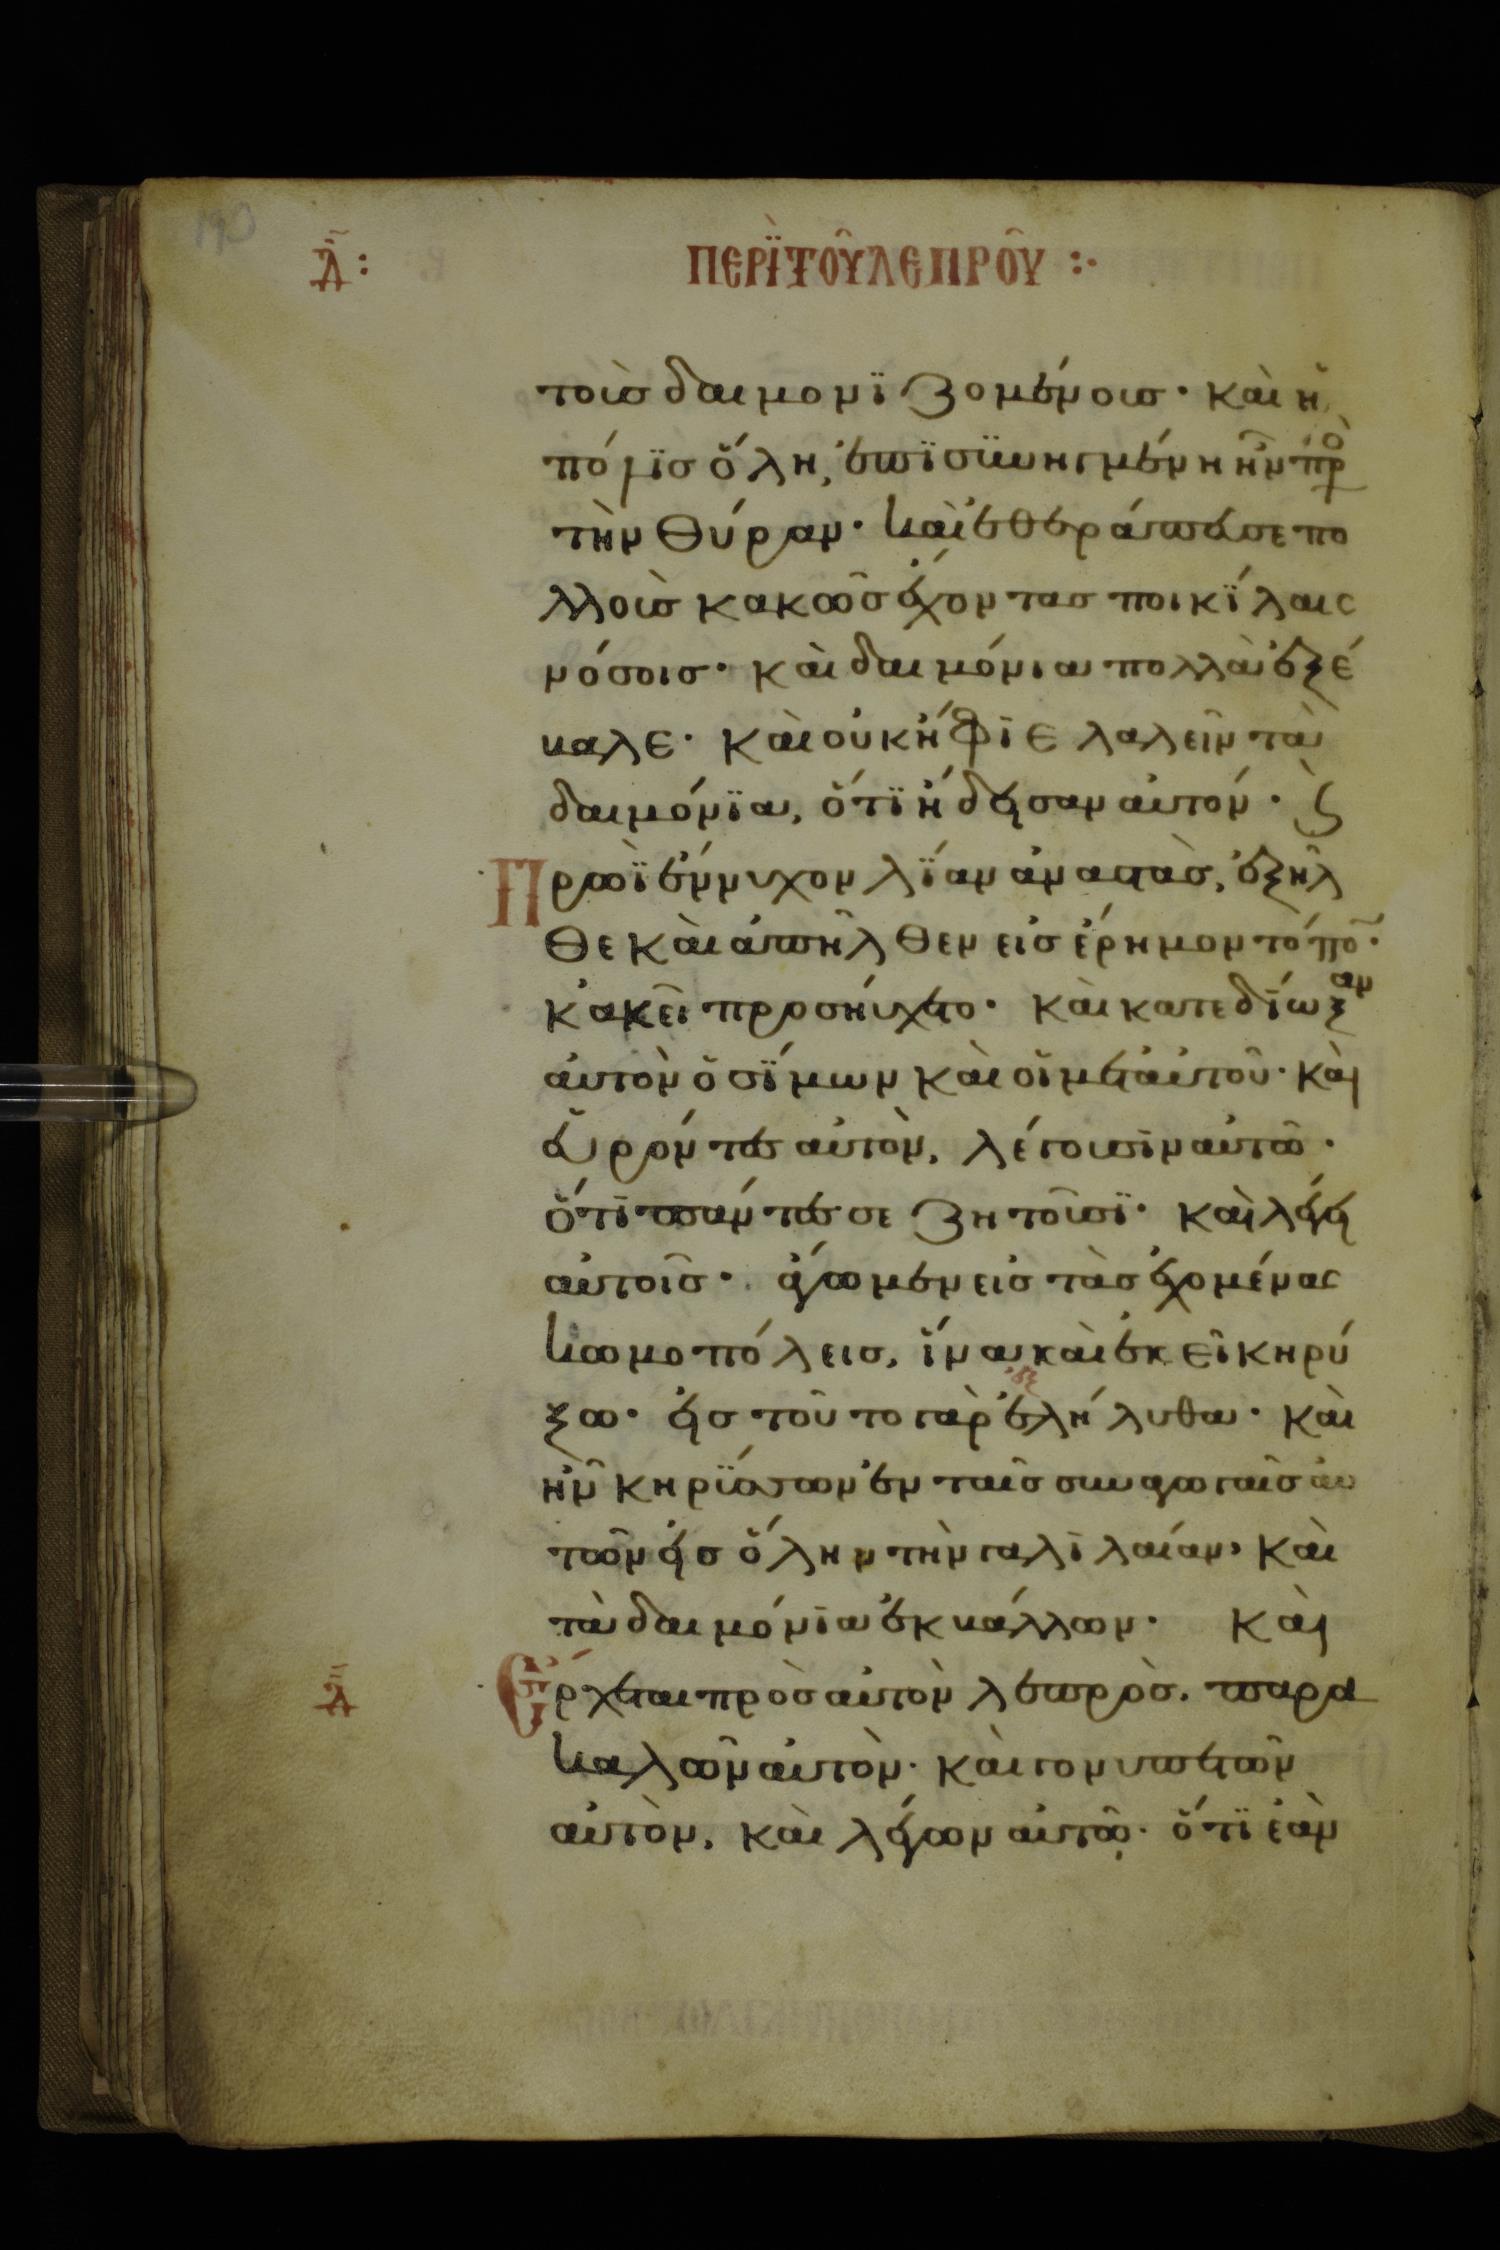 190
Δ̄: ΠΕΡῚ ΤΟΥ͂ ΛΕΠΡΟΥ͂ :·
τοὺς δαιμονϊζομένους· καὶ ἡ
πόλϊσ ὅλη, ἐπϊσϋνηγμένη ἦν πρὸ
τὴν θύραν· καὶ ἐθεράπευσε πο
λλοὺς κακῶσ ἔχοντασ ποικΐλαις
νόσοισ· καὶ δαιμόνια πολλὰ ἐξέ
βαλε· καὶ οὐκ ἤφϊε λαλεῖν τὰ
δαιμόνϊα, ὅτϊ ἤδεισαν αὐτόν· ζ
Πρωῒ ἔννυχον λΐαν ἀναστὰσ, ἐξῆλ
θε καὶ ἀπῆλθεν εἰσ ἔρημον τόπο̄·
κἀκεῖ προσηύχετο· καὶ κατεδίωξαν
αὐτὸν ὁ σΐμων καὶ οἱ μετ' αὐτοῦ· καὶ
εὑρόντες αὐτὸν, λέγουσιν αὐτῶ·
ὅτϊ πάντές σε ζητοῦσϊ· καὶ λέγει
αὐτοῖσ· ἄγωμεν εἰσ τὰσ ἐχομένας
κωμοπόλεισ, ἵνα καὶ ἐκεῖ κηρύ
ἐξ
ξω· εἰσ τοῦτο γὰρ ἐλήλυθα· καὶ
ἦν κηρΰσσων ἐν ταῖσ συναγωγαῖσ αὐ
τῶν εἰσ ὅλην τὴν γαλϊλαίαν· καὶ
τὰ δαιμόνϊα ἐκβάλλων· καὶ
Δ̄ Ἔρχεται πρὸσ αὐτὸν λεπρὸσ. παρα
καλῶν αὐτὸν· καὶ γονυπετῶν
αὐτὸν, καὶ λέγων αὐτῶ· ὅτϊ ἐὰν